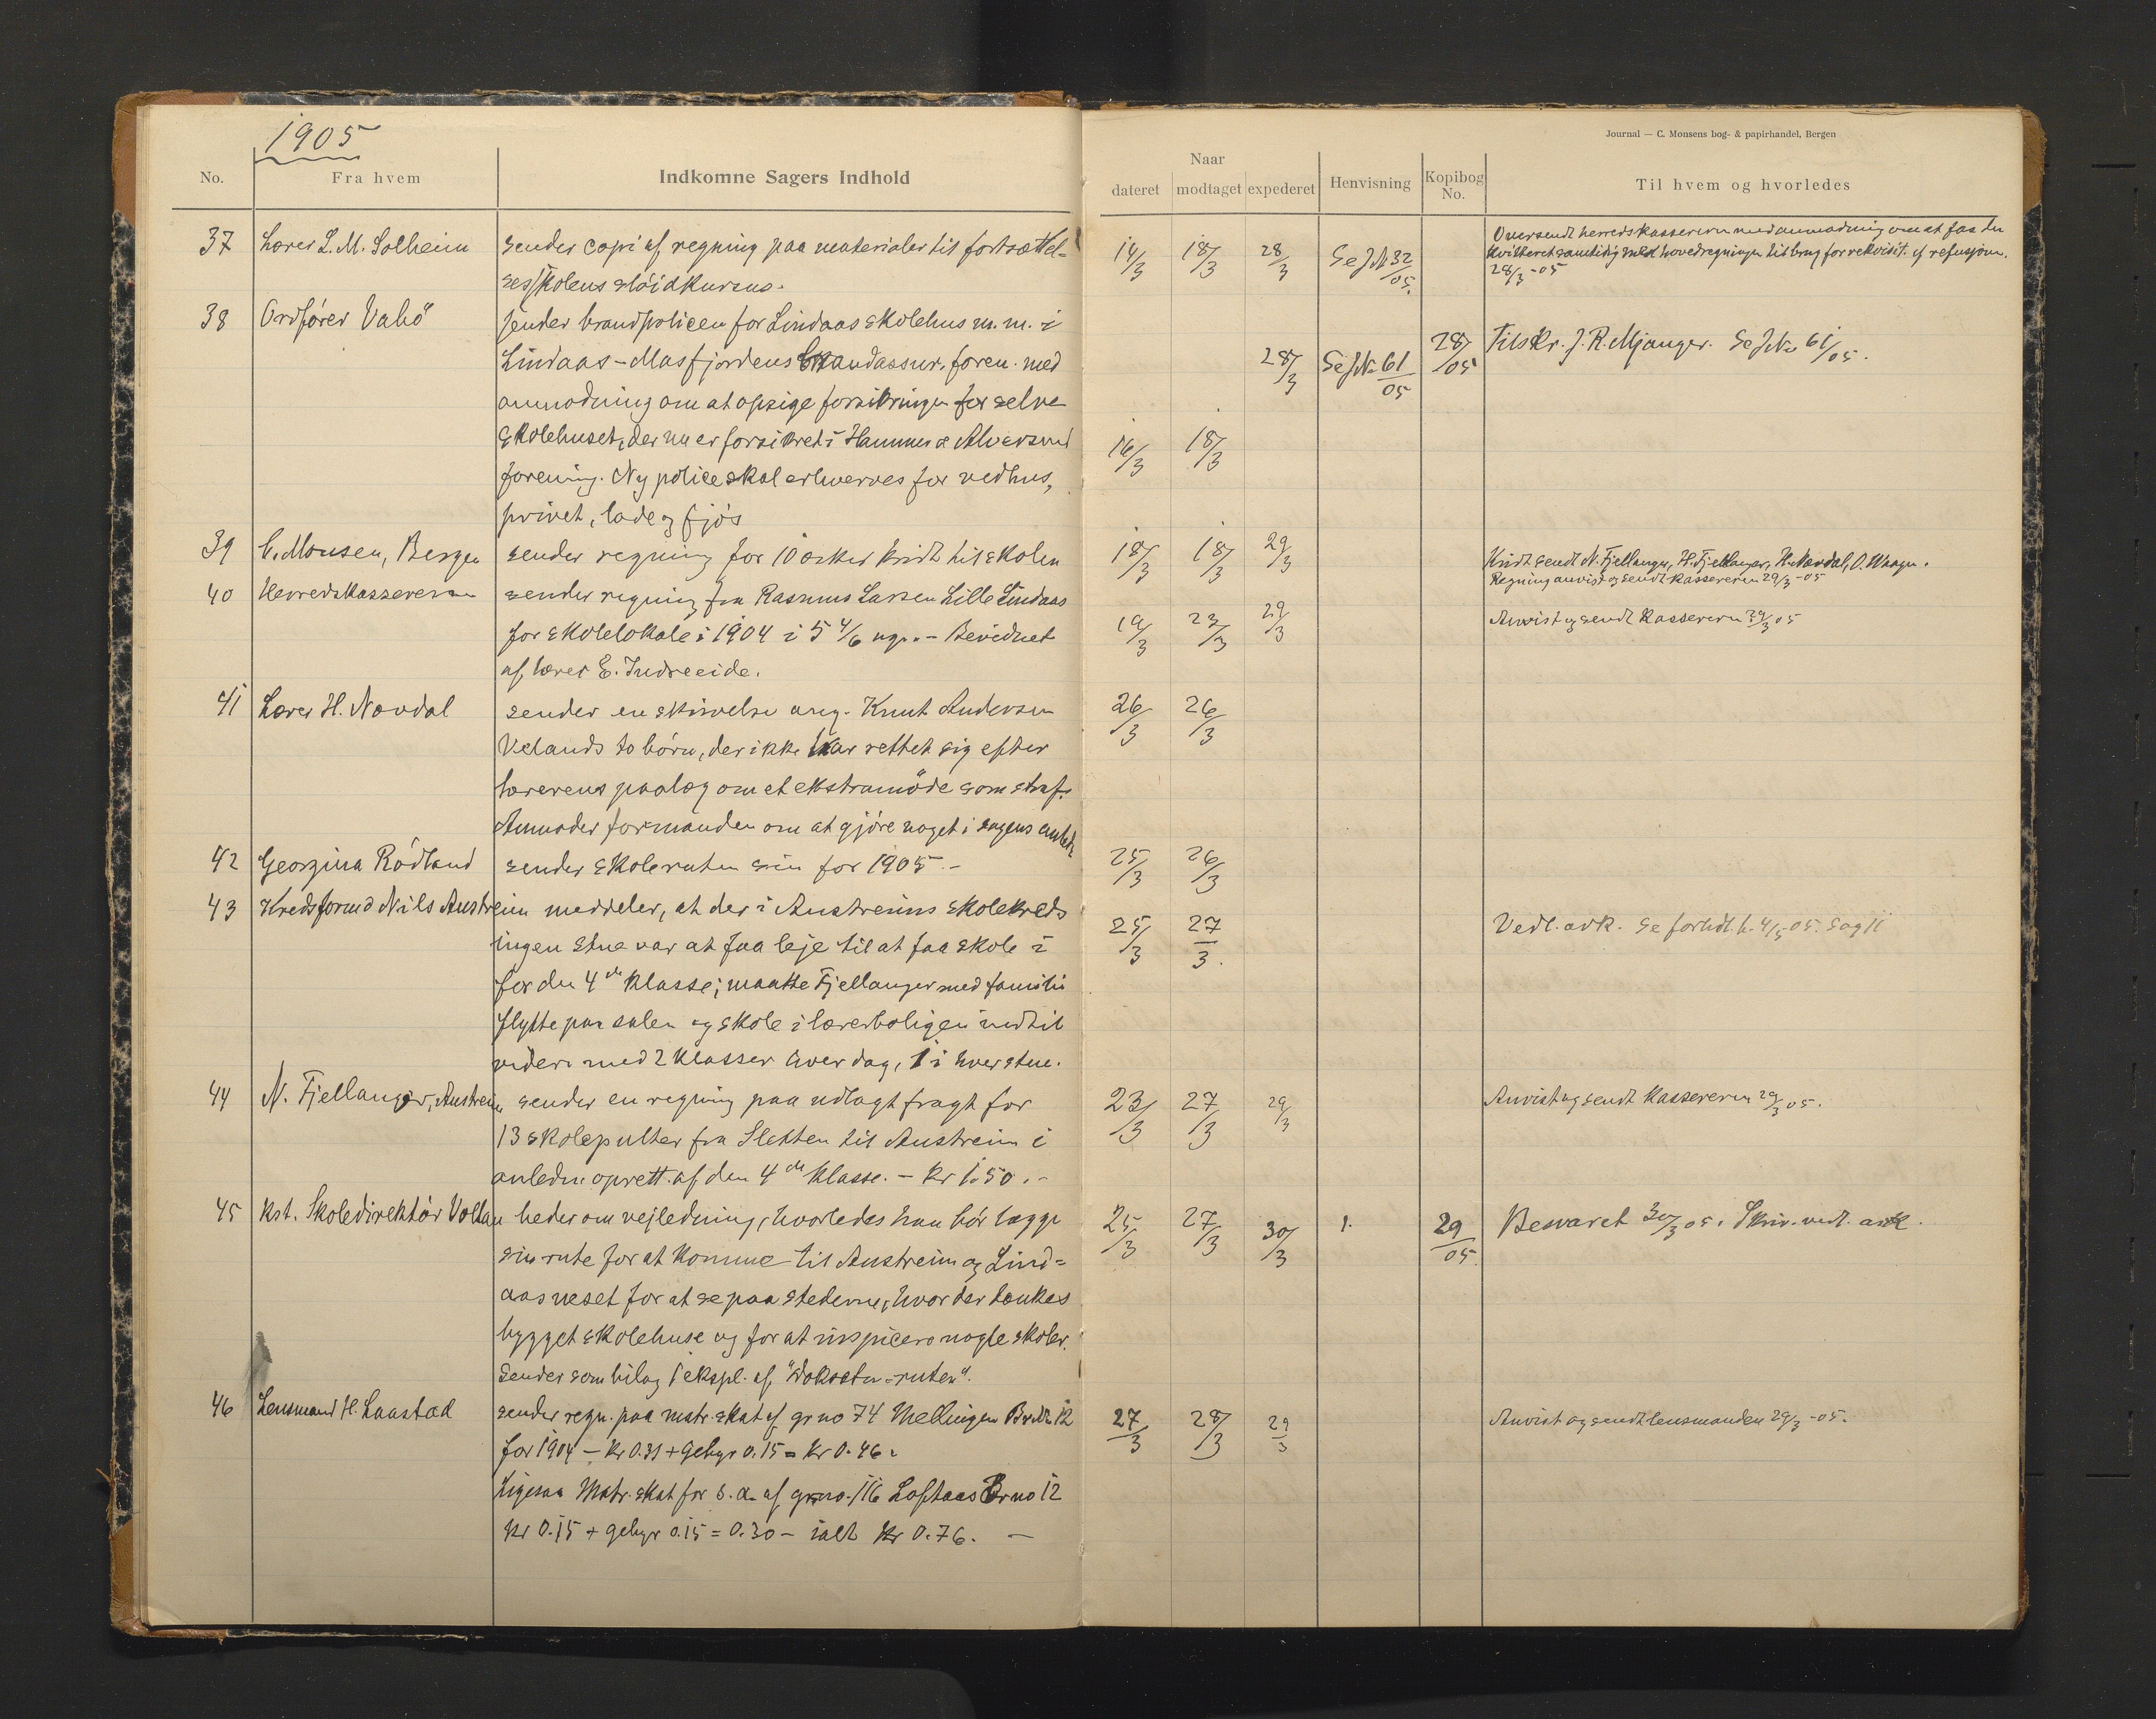 1905
No.
Fra hvem
Indkomne Sagers Indhold
37 Lærer L. M. Solheim sender copi af regning paa materialer til fortsættel=
sesskolens sløidkursus.
38 Ordfører Vabö sender brandpolicen for Lindaas skolehus m. m. i
Lindaas-Masfjordens brandassur. foren. med
anmodning om at opsige forsikringen for selve
skolehuset, der nu er forsikret i Hammer & Alversund
forening. Ny police skal erhverves for vedhus,
privet, lade og fjøs
39 C. Monsen, Bergen sender regning for 10 æsker kridt til skolen
40 Herredskassereren sender regning fra Rasmus Larsen Lille Lindaas
for skolelokale i 1904 i 5 4/6 uge. - Bevidnet
af lærer E. Indreeide.
41 Lærer H. Novdal sender en skrivelse ang. Knut Andersen
Velands to børn, der ikke har rettet sig efter
lærerens paalæg om et ekstramøde som straf.
Anmoder formanden om at gjøre noget i sagens anled.
42 Georgina Rödland sender skoleruten sin for 1905.-
43 Kredsformd Nils Austreim meddeler, at der i Austreims skolekreds
ingen stue var at faa leje til at faa skole i
for den 4de klasse; maatte Fjellanger med familie
flytte paa salen og skole i lærerboligen indtil
videre med 2 klasser hver dag, 1 i hver stue.
44 N. Fjellanger, Austreim sender en regning paa udlagt fragt for
13 skolepulter fra Sletten til Austreim i
anledn. oprett. af den 4de klasse. - kr 1.50.-
45 Kst. Skoledirektør Voltan beder om vejledning, hvorledes han bør lægge
sin rute for at komme til Austreim og Lind=
aasneset for at se paa stederne, hvor der tænkes
bygget skolehuse og for at inspicere nogle skoler.
Sender som bilag 1 ekspl. af "Vokseta-ruten".
46 Lensmand H. Laastad sender regn. paa matr. skat af gr no 74 Mellingen Br. No 12
for 1904 - kr 0.31 + gebyr 0.15 = kr 0.46.
Ligesaa Matr. skat for s. a. af gr no. 116 Loftaas Br no 12
kr 0.15 + gebyr 0.15 = 0.30 - ialt kr 0.76. -
Journal — C. Monsens bog- & papirhandel, Bergen
Naar
dateret
modtaget
expederet
Henvisning
Kopibog
No.
Til hvem og hvorledes
Oversendt herredskassereren med anmodning om at faa den
14/3 18/3 28/3 Se J№ 32/05. kvitteret samtidig med hovedregningen til brug for rekvisit. af refusjonen.
28/3-05
28/3 Se J№ 61/05 28/05 Tilskr. J. R. Mjanger. Se J№ 61/05.
16/3 18/3
18/3 18/3 29/3 Kridt sendt N. Fjellanger, H. Fjellanger, H. Novdal, O. Waage.
Regning anvist og sendt kassereren 29/3-05
19/3 23/3 29/3 Anvist og sendt kassereren 29/3 05
26/3 26/3
25/3 26/3
25/3 27/3. Vedl. ark. Se forhdl. p. 4/5 05. Sag 11
23/3 27/3 29/3 Anvist og sendt kassereren 29/3 05.
25/3 27/3 30/3 1. 29/05. Besvaret 30/3 05. Skriv. vedl. ark.
27/3 28/3 29/3 Anvist og sendt lensmanden 29/3-05.